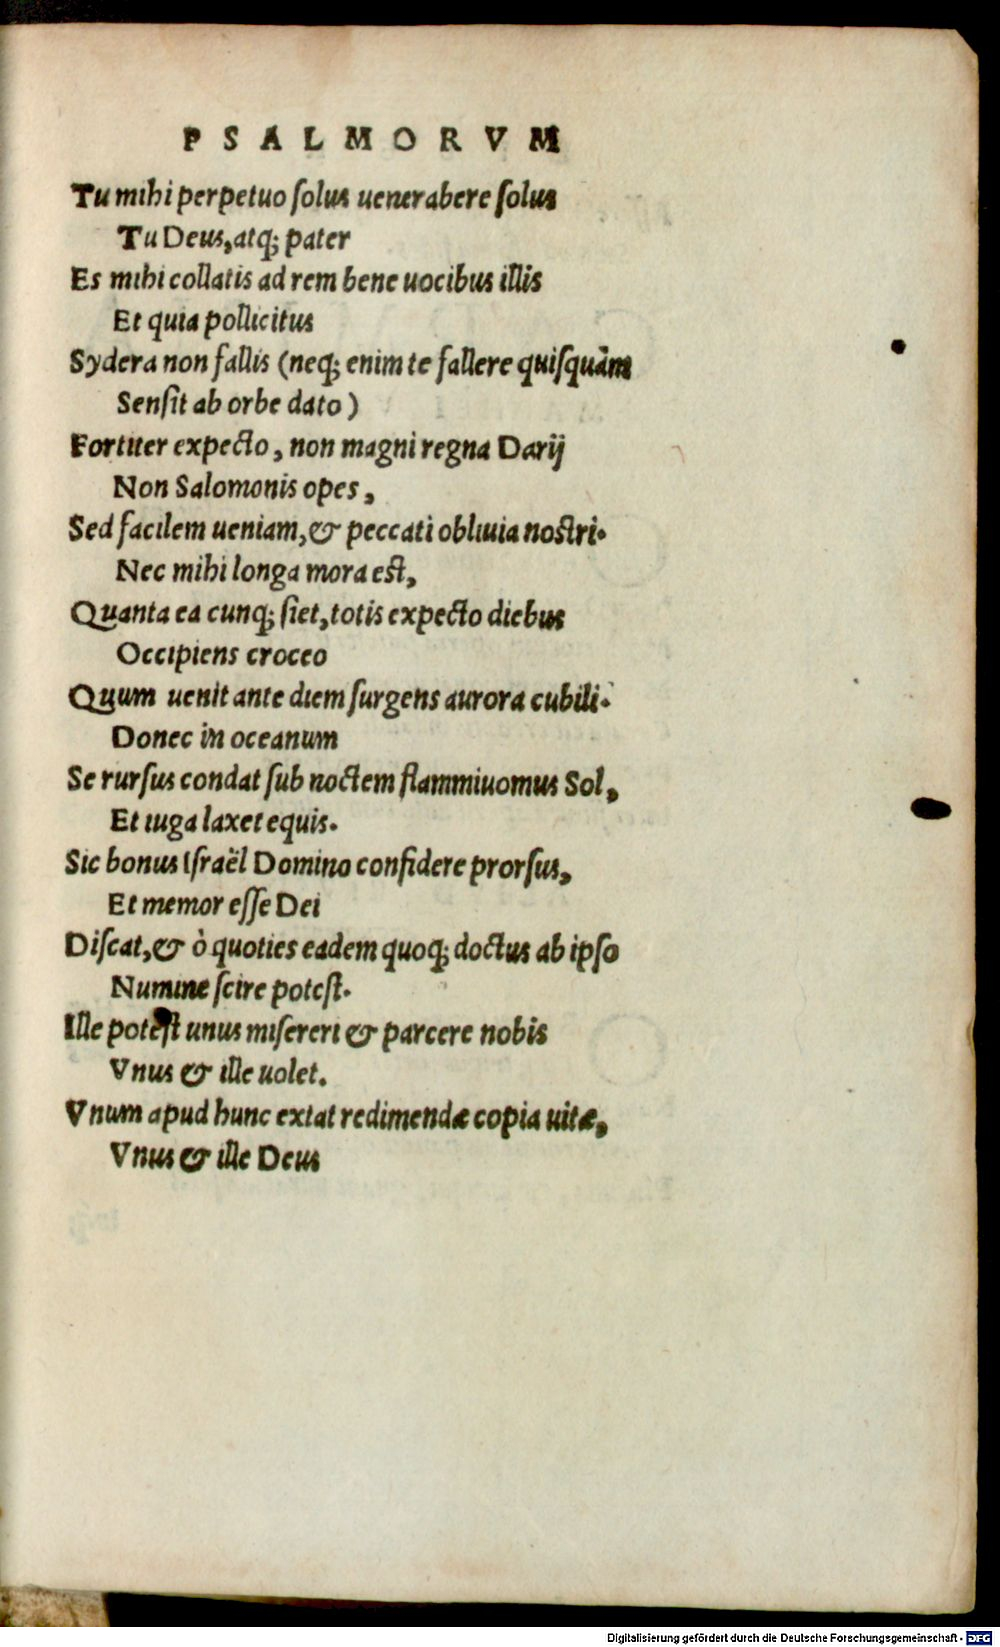 PSALMORVM
Tu mihi perpetuo ſolus uenerabere ſolus
Tu Deus, atq; pater
Es mihi collatis ad rem bene uocibus illis
Et quia pollicitus
Sydera non fallis (neq; enim te fallere quiſquãm
Senſit ab orbe dato)
Fortiter expecto, non magni regna Darij
Non Salomonis opes,
Sed facilem ueniam, & peccati obliuia noſtri.
Nec mihi longa mora eſt,
Quanta ea cunq; ſiet, totis expecto diebus
Occipiens croceo
Quum uenit ante diem ſurgens aurora cubili.
Donec in oceanum
Se rurſus condat ſub noctem flammiuomus Sol,
Et iuga laxet equis.
Sic bonus Iſraël Domino confidere prorſus,
Et memor eſſe Dei
Diſcat, & ò quoties eadem quoq; doctus ab ipſo
Numine ſcire poteſt.
Ille poteſt unus miſereri & parcere nobis
Vnus & ille uolet.
Vnum apud hunc extat redimendæ copia uitæ,
Vnus & ille Deus
Digitalisierung gefördert durch die Deutsche Forschungsgemeinschaft - DFG